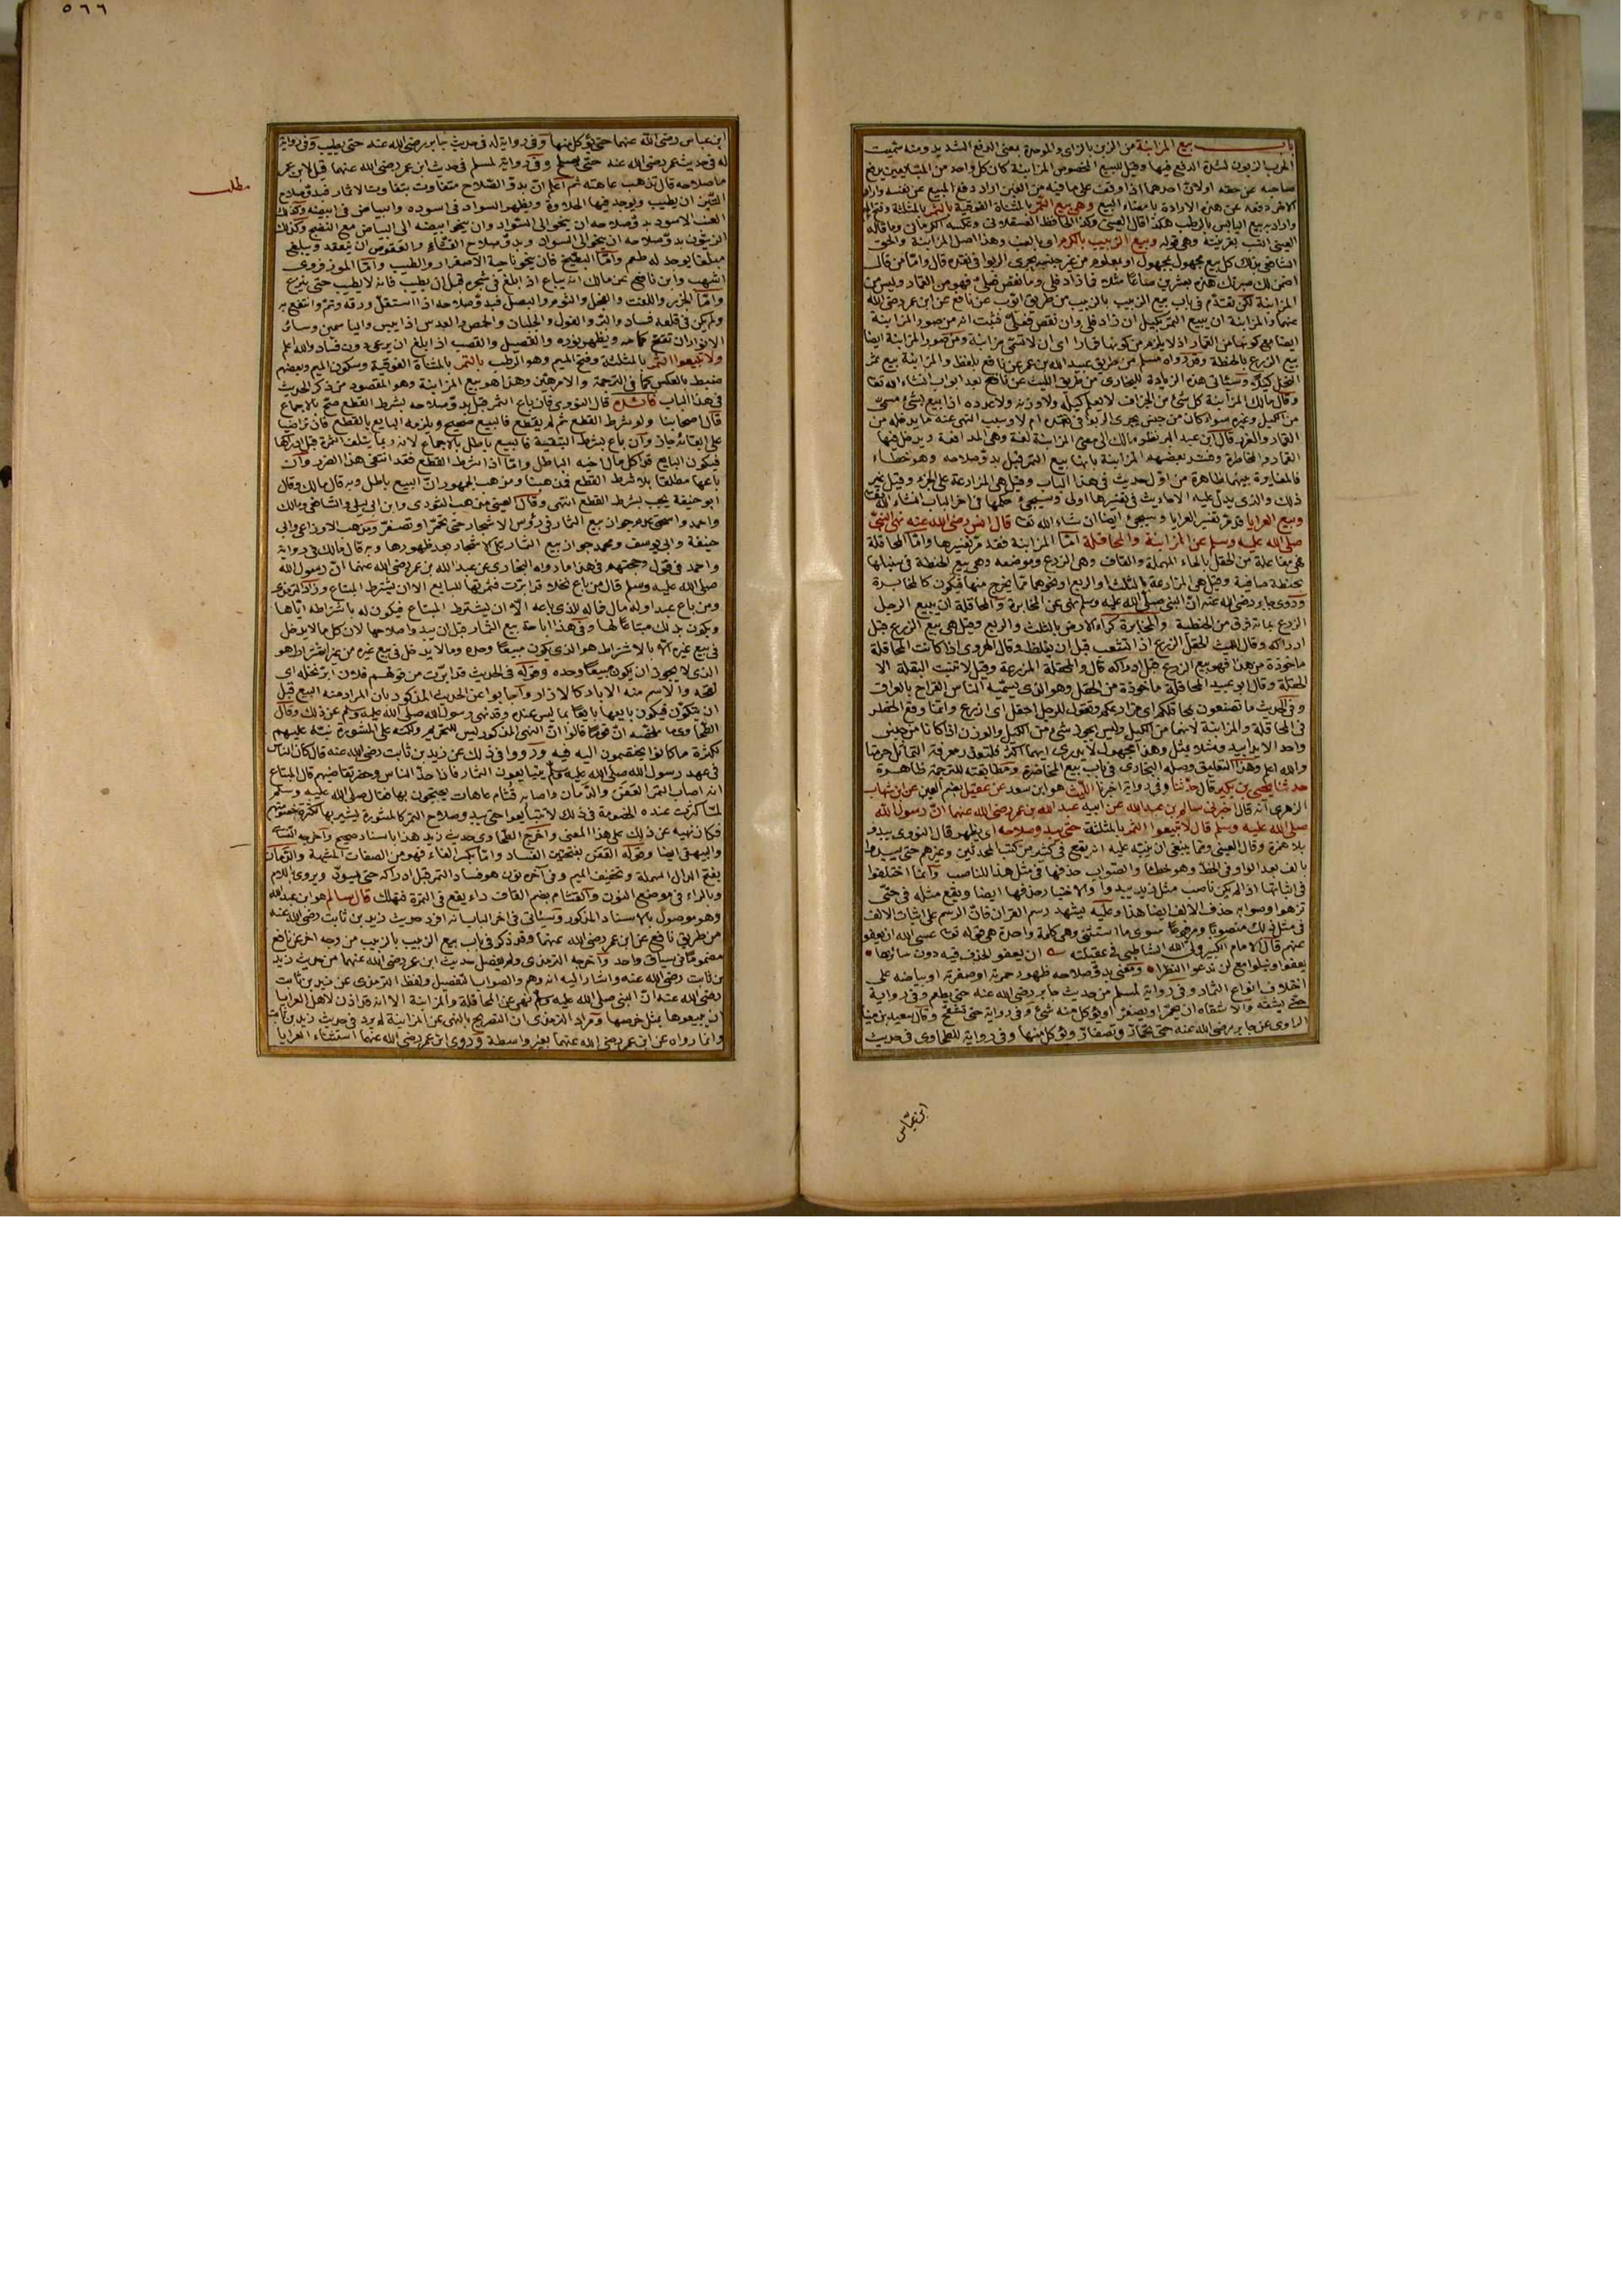 باب بيع المزابنة من الزبن بالزاى والموحدة بمعنى الدفع الشديد ومنه سميت
الحرب الزبون لشدة الدفع فيها وقيل للبيع المخصوص المزابنة كان كل واحد من المتبايعين يدفع
صاحبه عن حقه اولان احدهما اذا وقف على ما فيه من الغبن اراد دفع المبيع عن نفسه واراد
الاخر دفعه عن هذه الارادة بامضاء البيع وهى بيع التمر بالمثناة الفوقية بالثمر بالمثلثة وفتح الميم
واراد به بيع اليابس بالرطب هكذا قال العينى وكذا الحافظ العسقلانى وعكسه الكرمانى وما قاله
العينى انسب بقرينة وهى قوله وبيع الزبيب بالكرم اى بالعنب وهذا اصل المزابنة والحق
الشافعى بذلك كل بيع مجهول بمجهول او بمعلوم من غير جنسه يجرى الربوا فى نقده قال واما من قال
اضمن لك صبرتك هذه بعشرين صاعا مثلا فما زاد فلى وما نقص فعلى فهو من القمار وليس من
المزابنة لكن تقدم فى باب بيع الزبيب بالزبيب من طريق ايوب عن نافع عن ابن عمر رضى الله
عنهما والمزابنة ان يبيع الثمر بكيل ان زاد فلى وان نقص فعلى فثبت انه من صور المزابنة
ايضا مع كونها من القمار اذ لا يلزم من كونها قمارا اى ان لا تسمى مزابنة ومن صور المزابنة ايضا
بيع الزرع بالحنطة وقد رواه مسلم من طريق عبيد الله بن عمر عن نافع بلفظ والمزابنة بيع ثمر
النخل كيلا وستاتى هذه الزيادة للبخارى من طريق الليث عن نافع بعد ابواب انشاء الله تعا
وقال مالك المزابنة كل شئ من الجزاف لا يعلم كيله ولا وزنه ولا عدده اذا بيع بشئ مسمى
من الكيل وغيره سواء كان من جنس يجرى الربوا فى نقده ام لا وسبب النهى عنه ما يدخله من
القمار والغرر قال ابن عبد البر نظر مالك الى معنى المزابنة لغة وهى المدافعة ويدخل فيها
القمار والمخاطرة وفسر بعضهم المزابنة بانها بيع الثمر قبل بدو صلاحه وهو خطاء
فالمغايرة بينهما ظاهرة من اول حديث فى هذا الباب وقيل هى المزارعة على الجزء وقيل غير
ذلك والذى يدل عليه الاحاديث فى تفسيرها اولى وسيجئ حكمها فى اخر الباب انشاء الله تعا
وبيع العرايا قد مر تفسير العرايا وسيجئ ايضا ان شاء الله تعا قال انس رضى الله عنه نهى النبى
صلى الله عليه وسلم عن المزابنة والمحاقلة اما المزابنة فقد مر تفسيرها واما المحاقلة
فهى مفاعلة من الحقل بالحاء المهملة والقاف وهى الزرع وموضعه وهى بيع الحنطة فى سنبلها
بحنطة صافية وقيل هى المزارعة بالثلث او الربع او نحوهما مما يخرج منها فيكون كالمخابرة
وروى جابر رضى الله عنه ان النبى صلى الله عليه وسلم نهى عن المخابرة والمحاقلة ان يبيع الرجل
الزرع بمائة فرق من الحنطة والمخابرة كراء الارض بالثلث والربع وقيل هى بيع الزرع قبل
ادراكه وقال الليث الحقل الزرع اذا تشعب قبل ان يغلظ وقال الهروى اذا كانت المحاقلة
ماخوذة من هذا فهو بيع الزرع قبل ادراكه قال والمحقلة المزرعة وقيل لا تنبت البقلة الا
الحقلة وقال ابو عبيد المحاقلة ماخوذة من الحقل وهو الذى يسميه الناس القراح بالعراق
وفى الحديث ما تصنعون بمحاقلكم اى مزارعكم وتقول للرجل احقل اى ازرع وانما وقع الحظر
فى المحاقلة والمزابنة لانهما من الكيل وليس يجوز شئ من الكيل والوزن اذا كانا من جنس
واحد الا يدا بيد ومثلا بمثل وهذا مجهول لا يدرى ايهما اكثر
والله اعلم وهذا التعليق وصله البخارى فى باب بيع المخاضرة ومطابقته للترجمة ظاهرة
حدثنا يحيى بن بكير قال حدثنا وفى رواية اخبرنا الليث هو ابن سعد عن عقيل بضم العين عن ابن شهاب
الزهرى انه قال اخبرنى سالم بن عبد الله عن ابيه عبد الله بن عمر رضى الله عنهما ان رسول الله
صلى الله عليه وسلم قال لا تبيعوا الثمر بالمثلثة حتى يبدو صلاحه اى يظهر قال النووى يبدو
بلا همزة وقال العينى ومما ينبغى ان ينبه عليه انه يقع فى كثير من كتب المحدثين وغيرهم حتى يبدوا
بالف بعد الواو فى الخط وهو خطا والصواب حذفها فى مثل هذا للناصب وانما اختلفوا
فى اثباتها اذا لم يكن ناصب مثل زيد يبدوا والاختيار حذفها ايضا ويقع مثله فى حتى
تزهوا وصوابه حذف الالف ايضا هذا وعليه يشهد رسم القران فان الرسم على اثبات الالف
فى مثل ذلك منصوبا ومرفوعا سوى ما استثنى وهى كلمة واحدة هى قوله تعا عسى الله ان يعفو
عنهم قال الامام الكبير ولى الله الشاطبى فى عقيلته ان يعفو الحذف فيه دون سائرها
يعفوا ويبلوا مع لن ندعوا النظرا ومعنى بدو صلاحه ظهور حمرته او صفرته او بياضه على
اختلاف انواع الثمار وفى رواية لمسلم من حديث جابر رضى الله عنه حتى يطعم وفى رواية
حتى يشقه والاشقاه ان يحمر او يصفر او يؤكل منه شئ وفى رواية حتى تشقح وقال سعيد بن مينا
الراوى عن جابر رضى الله عنه حتى تحمار وتصفار ويؤكل منها وفى رواية للطحاوى فى حديث
ابن عباس
٥٦٦
ابن عباس رضى الله عنهما حتى يؤكل منها وفى رواية له فى حديث جابر رضى الله عنه حتى يطيب وفى رواية
له فى حديث عمر رضى الله عنه حتى يصلح وفى رواية لمسلم فى حديث ابن عمر رضى الله عنهما قيل لابن عمر
ما صلاحه قال تذهب عاهته ثم اعلم ان بدو الصلاح متفاوت بتفاوت الاثمار فبدو صلاح
مطلب
التين ان يطيب ويوجد فيها الحلاوة ويظهر السواد فى اسوده والبياض فى ابيضه وكذلك
العنب الاسود بدو صلاحه ان ينحو الى السواد وان ينحو ابيضه الى البياض مع النضج وكذلك
الزيتون بدو صلاحه ان ينحو الى السواد وبدو صلاح القثاء والفقوص ان ينعقد ويبلغ
مبلغا يوجد له طعم واما البطيخ فان ينحو ناحية الاصفرار والطيب واما الموز فروى
اشهب وابن نافع عن مالك انه يباع اذا بلغ فى شجره قبل ان يطيب فانه لا يطيب حتى ينزع
واما الجزر واللفت والفجل والثوم والبصل فبدو صلاحه اذا استقل ورقه وتم وانتفع به
ولم يكن فى قلعه فساد والبر والفول والجلبان والحمص والعدس اذا يبس والياسمين وسائر
الانوار ان تفتح كمامه ويظهر نوره والقصيل والقصب اذا بلغ ان يرعى دون فساد والله اعلم
ولا تبيعوا الثمر بالمثلثة وفتح الميم وهو الرطب بالتمر بالمثناة الفوقية وسكون الميم وبعضهم
ضبط بالعكس كما فى الترجمة والامر هين وهذا هو بيع المزابنة وهو المقصود من ذكر الحديث
فى هذا الباب فائدة قال النووى فان باع الثمر قبل بدو صلاحه بشرط القطع صح بالاجماع
قال اصحابنا ولو شرط القطع ثم لم يقطع فالبيع صحيح ويلزمه البايع بالقطع فان تراضيا
على ابقائه جاز وان باع بشرط التبقية فالبيع باطل بالاجماع لانه ربما يتلف الثمرة قبل ادراكها
فيكون البايع قد اكل مال اخيه الباطل واما اذا شرط القطع فقد انتفى هذا الضرر وان
باعها مطلقا بلا شرط القطع فمذهبنا ومذهب الجمهور ان البيع باطل وبه قال مالك وقال
ابو حنيفة يجب بشرط القطع انتهى وقال العينى مذهب الثورى وابن ابى ليلى والشافعى ومالك
واحمد واسحق عدم جواز بيع الثمار فى رؤس الاشجار حتى تحمر او تصفر ومذهب الاوزاعى وابى
حنيفة وابى يوسف ومحمد جواز بيع الثمار على الاشجار بعد ظهورها وبه قال مالك فى رواية
واحمد فى قول وحجتهم فى هذا ما رواه البخارى عن عبد الله بن عمر رضى الله عنهما ان رسول الله
صلى الله عليه وسلم قال من باع نخلا قد ابرت فثمرتها للبايع الا ان يشترط المبتاع وزاد الترمذى
ومن باع عبدا وله مال فماله للذى باعه الا ان يشترط المبتاع فيكون له باشتراطه اياها
ويكون بذلك مبتاعا لها وفى هذا اباحة بيع الثمار قبل ان يبدو صلاحها لان كل ما لا يدخل
فى بيع غيره الا بالاشتراط هو الذى يكون مبيعا وحده وما لا يدخل فى بيع غيره من غير اشتراط هو
الذى لا يجوز ان يكون مبيعا وحده وقوله فى الحديث قد ابرت من قولهم فلان ابر نخله اى
لقحه والاسم منه الابار كالازار واجابوا عن الحديث المذكور بان المراد منه البيع قبل
ان يتكون فيكون بايعها بايعا بما ليس عنده وقد نهى رسول الله صلى الله عليه وسلم عن ذلك وقال
الطحاوى ما ملخصه ان قوما قالوا ان النهى المذكور ليس للتحريم ولكنه على المشورة منه عليهم
لكثرة ما كانوا يختصمون اليه فيه ورووا فى ذلك عن زيد بن ثابت رضى الله عنه قال كان الناس
فى عهد رسول الله صلى الله عليه وسلم يتبايعون الثمار فاذا جد الناس وحضر تقاضيهم قال المبتاع
انه اصاب الثمر العفن والدمان واصابه قشام عاهات يحتجون بها فقال صلى الله عليه وسلم
لما كثرت عنده الخصومة فى ذلك لا تتبايعوا حتى يبدو صلاح الثمر كالمشورة يشير بها لكثرة خصومتهم
فكان نهيه عن ذلك على هذا المعنى واخرج الطحاوى حديث زيد هذا باسناد صحيح واخرجه النسائى
والبيهقى ايضا وقوله العفن بفتحتين الفساد واما بكسر الفاء فهو من الصفات المشبهة والدمان
بفتح الدال المهملة وتخفيف الميم وفى اخره نون هو فساد الثمر قبل ادراكه حتى يسود ويروى باللام
وبالراء فى موضع النون والقشام بضم القاف داء يقع فى الثمرة فتهلك قال سالم هو ابن عبد الله
وهو موصول بالاسناد المذكور وسياتى فى اخر الباب انه افرد حديث زيد بن ثابت رضى الله عنه
من طريق نافع عن ابن عمر رضى الله عنهما وقد ذكر فى باب بيع الزبيب بالزبيب من وجه اخر عن نافع
مضموما فى سياق واحد واخرجه الترمذى ولم يفصل حديث ابن عمر رضى الله عنهما من حديث زيد
بن ثابت رضى الله عنه واشار اليه انه وهم والصواب التفصيل ولفظ الترمذى عن زيد بن ثابت
رضى الله عنه ان النبى صلى الله عليه وسلم نهى عن المحاقلة والمزابنة الا انه قد اذن لاهل العرايا
ان يبيعوها بمثل خرصها ومراد الترمذى ان التصريح بالنهى عن المزابنة لم يرد فى حديث زيد بن ثابت
وانما رواه عن ابن عمر رضى الله عنهما بغير واسطة وروى ابن عمر رضى الله عنهما استثناء العرايا